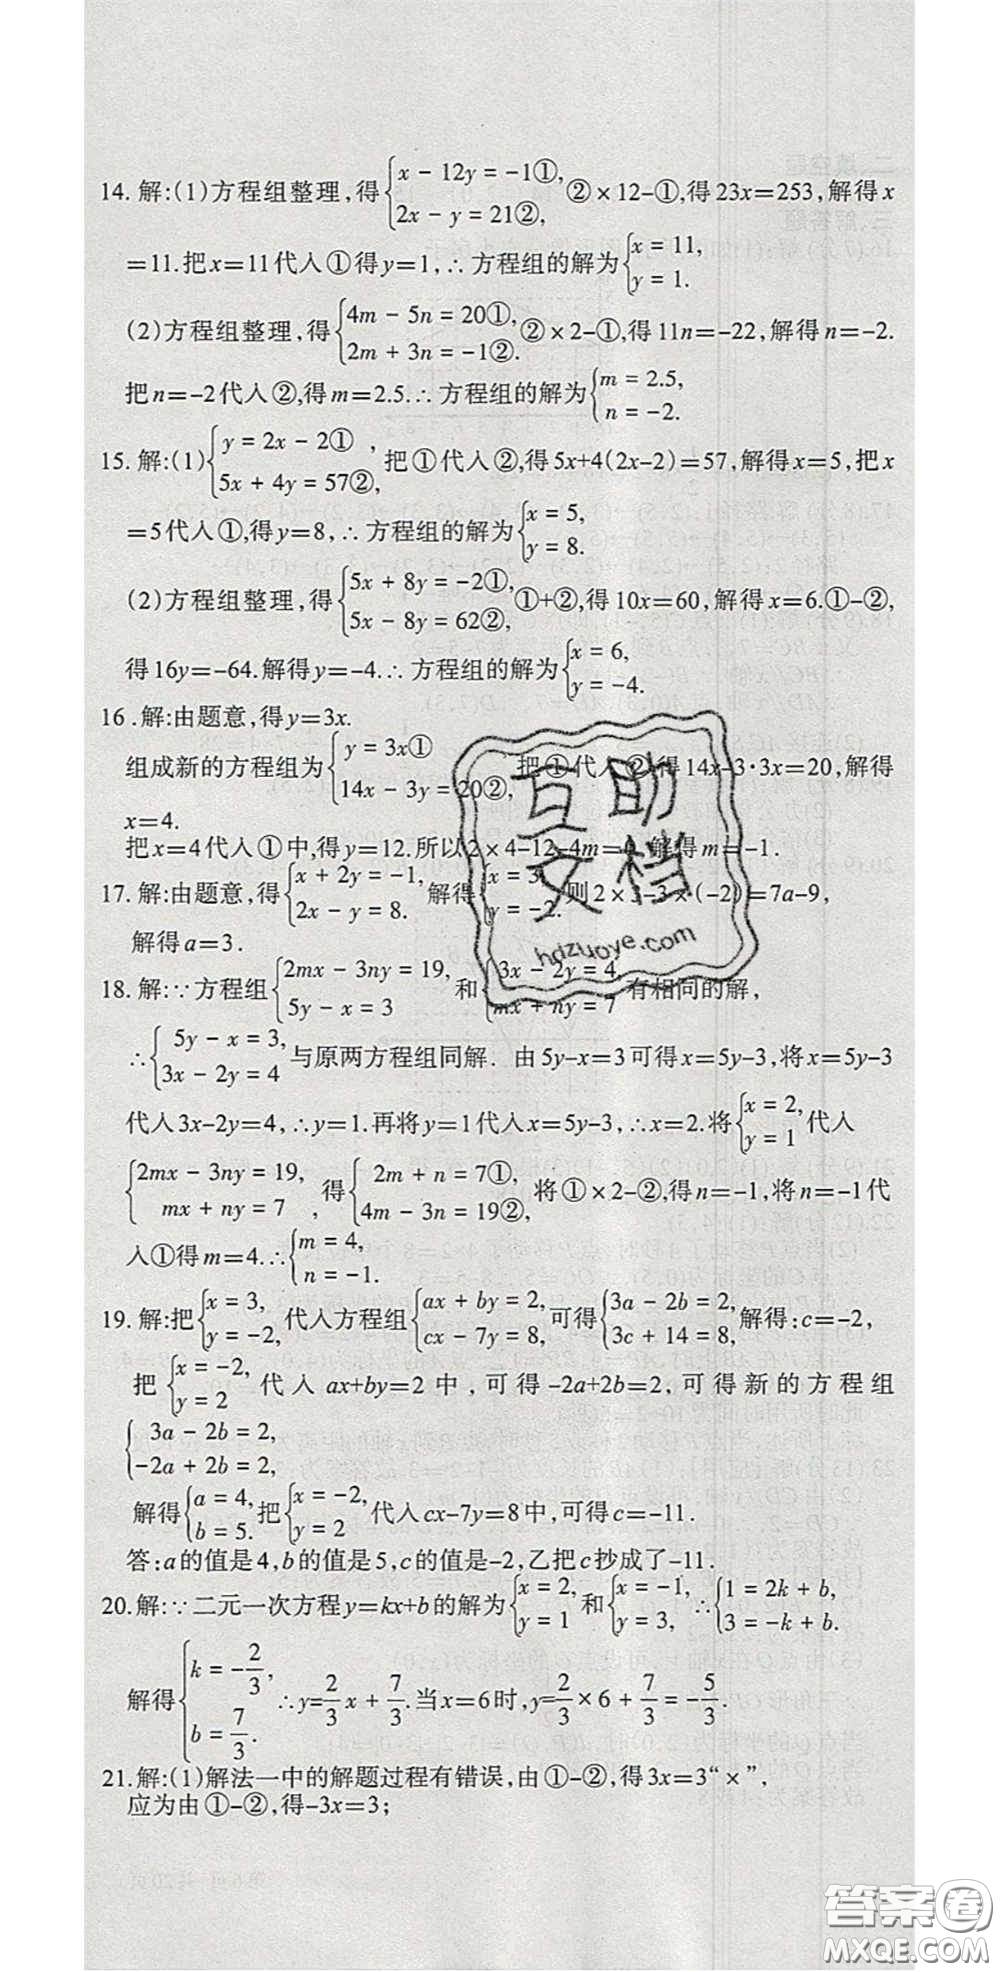 14.解:(1)方程组整理,得{x-12y=-1①, 2x-y=21②, ②×12-①,得23x=253,解得x
=11.把x=11代入①得y=1,∴方程组的解为{x=11, y=1.
(2)方程组整理,得{4m-5n=20①, 2m+3n=-1②. ②×2-①,得11n=-22,解得n=-2.
把n=-2代入②,得m=2.5.∴方程组的解为{m=2.5, n=-2.
15.解:(1){y=2x-2①, 5x+4y=57②, 把①代入②,得5x+4(2x-2)=57,解得x=5,把x
=5代入①,得y=8,∴方程组的解为{x=5, y=8.
(2)方程组整理,得{5x+8y=-2①, 5x-8y=62②, ①+②,得10x=60,解得x=6.①-②,
得16y=-64.解得y=-4.∴方程组的解为{x=6, y=-4.
16.解:由题意,得y=3x.
组成新的方程组为{y=3x① 14x-3y=20②, 把①代入②,得14x-3·3x=20,解得
x=4.
把x=4代入①中,得y=12.所以2×4-12-4m= 解得m=-1.
17.解:由题意,得{x+2y=-1, 2x-y=8. 解得{x=3 y=-2. 则2×3-3×(-2)=7a-9,
解得a=3.
18.解:∵方程组{2mx-3ny=19, 5y-x=3 和{3x-2y=4, mx+ny=7 有相同的解,
∴{5y-x=3, 3x-2y=4 与原两方程组同解. 由5y-x=3可得x=5y-3,将x=5y-3
代入3x-2y=4,∴y=1.再将y=1代入x=5y-3,∴x=2.将{x=2, y=1 代入
{2mx-3ny=19, mx+ny=7 ,得{2m+n=7①, 4m-3n=19②, 将①×2-②,得n=-1,将n=-1代
入①得m=4.∴{m=4, n=-1.
19.解:把{x=3, y=-2, 代入方程组{ax+by=2, cx-7y=8, 可得{3a-2b=2, 3c+14=8, 解得:c=-2,
把{x=-2, y=2 代入ax+by=2中,可得-2a+2b=2,可得新的方程组
{3a-2b=2, -2a+2b=2,
解得{a=4, b=5. 把{x=-2, y=2 代入cx-7y=8中,可得c=-11.
答:a的值是4,b的值是5,c的值是-2,乙把c抄成了-11.
20.解:∵二元一次方程y=kx+b的解为{x=2, y=1 和{x=-1, y=3, ∴{1=2k+b, 3=-k+b.
解得{k=-2/3, b=7/3. ∴y=-2/3x+7/3.当x=6时,y=-2/3×6+7/3=-5/3.
21.解:(1)解法一中的解题过程有错误,由①-②,得3x=3“×”,
应为由①-②,得-3x=3;
互助
文档
hdzuoye.com
答案圈
MXQE.COM